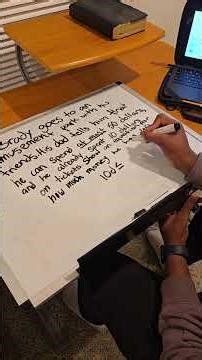 Brady goes to an
amusement park with his
friends. His dad tells him that
he can spend at most 50 dollars,
and he already spent 10 dollars
on tickets.
how much money
10d ≤